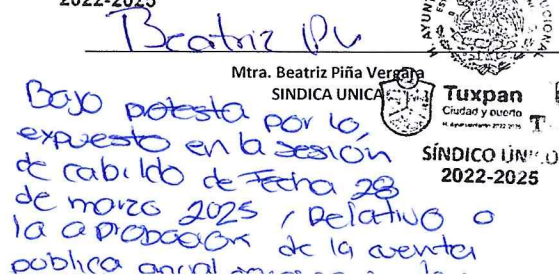 2022-2025
Beatriz PV
Mtra. Beatriz Piña Vergara
SINDICA UNICA
H. AYUN
Tuxpan
Ciudad y puerto
SÍNDICO ÚNICO
2022-2025
Bajo protesta por lo
expuesto en la sesión
de cabildo de Fecha 28
de marzo 2025, Relativo a
la aprobación de la cuenta
pública anual